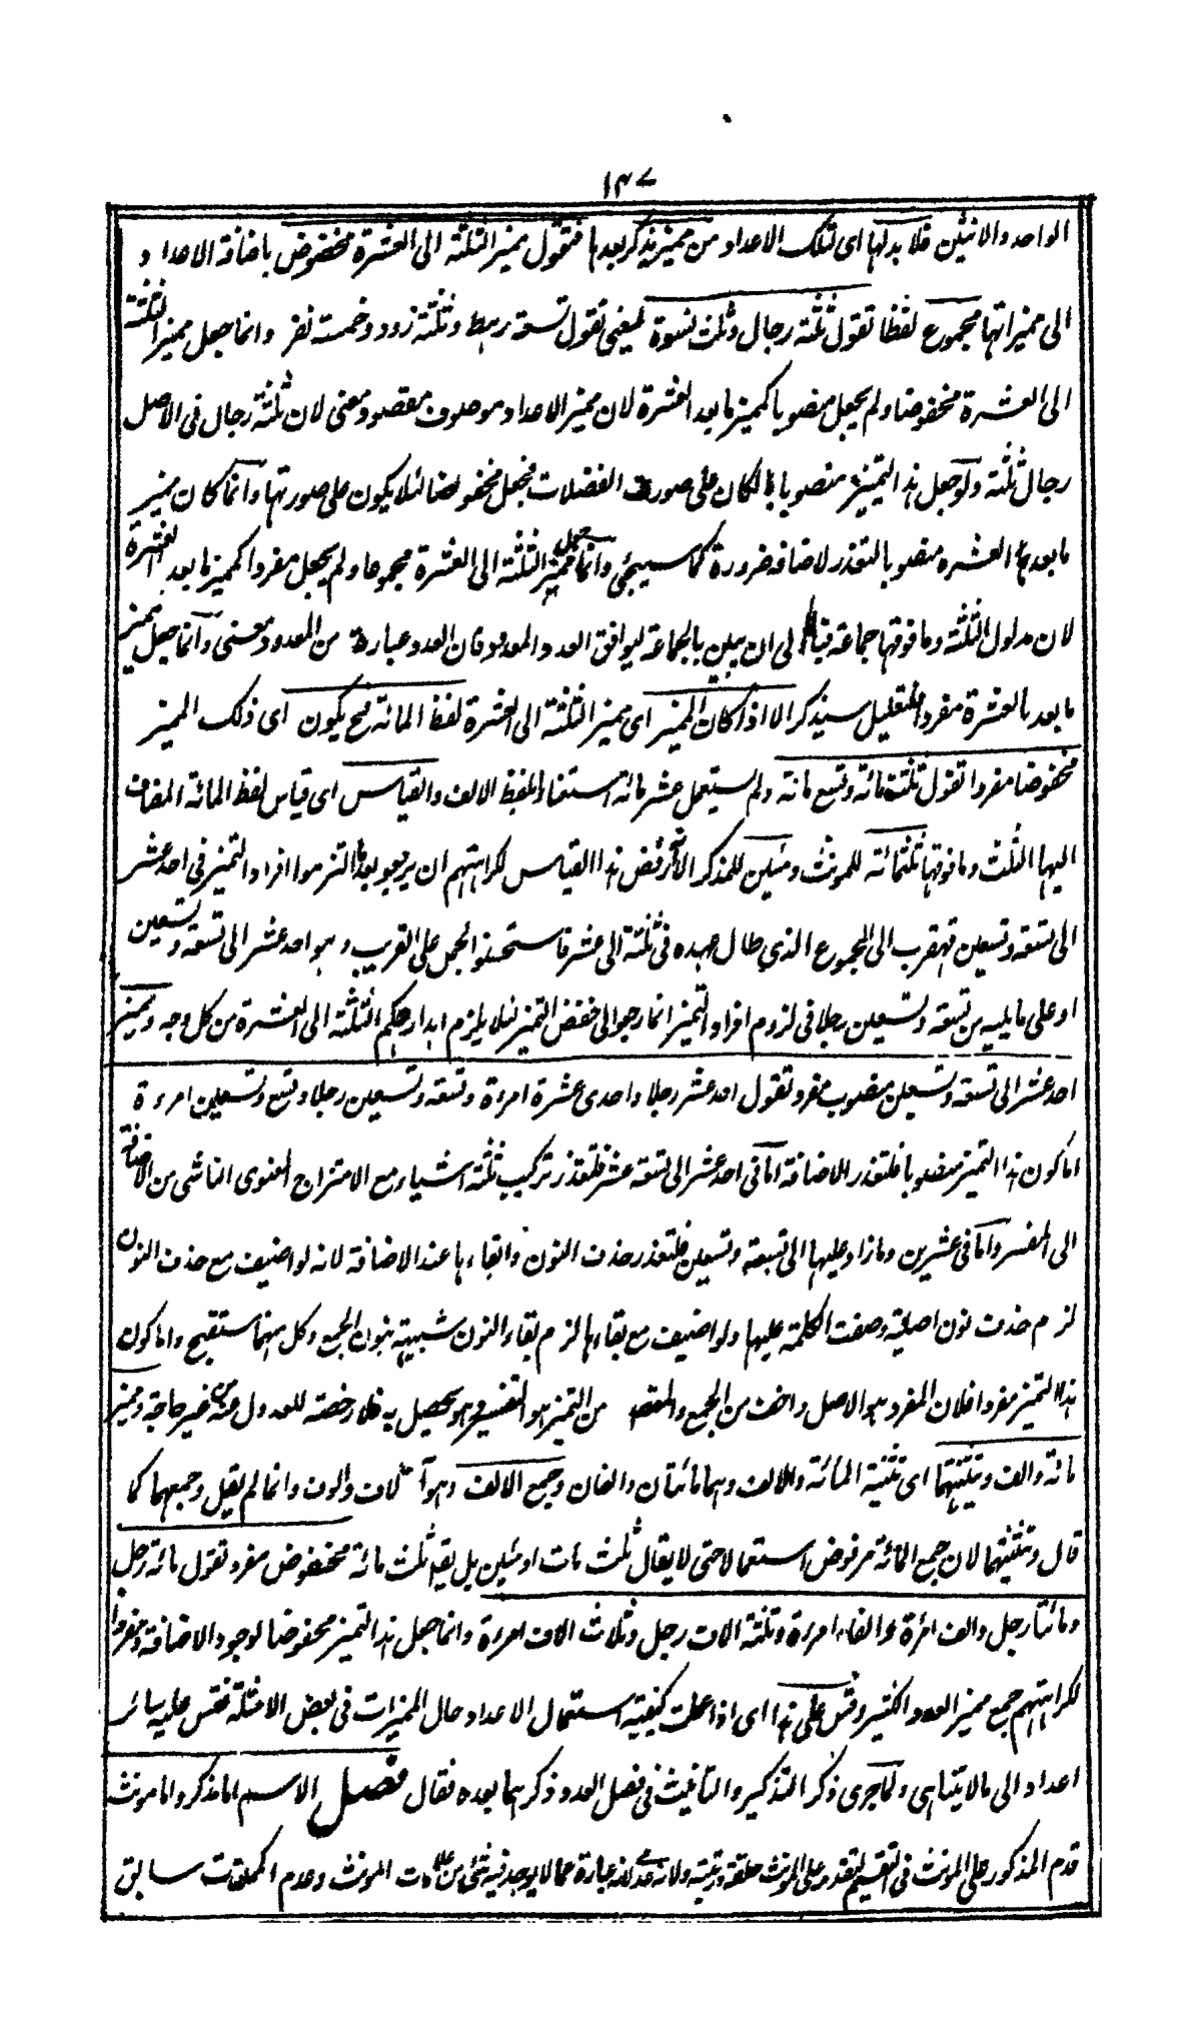 ١٤٧
الواحد والاثنين فلا بد لها اى لتلك الاعداد من مميز يذكر بعدها فتقول مميز الثلثة الى العشرة مخفوض باضافة الاعداد
الى مميزاتها مجموع لفظا تقول ثلثة رجال وثلث نسوة او معنى تقول تسعة رهط وثلثة ذود وخمسة نفر وانما جعل مميز الثلثة
الى العشرة مخفوضا ولم يجعل منصوبا كمميز ما بعد العشرة لان مميز الاعداد موصوف مقصود معنى لان ثلثة رجال فى الاصل
رجال ثلثة ولو جعل هذا التميز منصوبا لكان على صورة الفضلات فجعل مخفوضا لئلا يكون على صورتها وانما كان مميز
ما بعد العشرة منصوبا لتعذر الاضافة ضرورة كما سيجئ وانما جعل مميز الثلثة الى العشرة مجموعا ولم يجعل مفردا كمميز ما بعد العشرة
لان مدلول الثلثة وما فوقها جماعة الى ان يبين بالجماعة ليوافق العدد والمعدود فان العدد عبارة من المعدود معنى وانما جعل مميز
ما بعد العشرة مفردا لتعليل سيذكر الا اذا كان المميز اى مميز الثلثة الى العشرة لفظ المائة فح يكون اى ذلك المميز
مخفوضا مفردا تقول ثلثمائة وتسع مائة ولم يستعمل عشر مائة استغناء بلفظ الالف والقياس اى قياس لفظ المائة المضاف
اليها الثلث وما فوقها ثلثمائة للمونث ومئين للمذكر الا رفض هذا القياس لكراهتهم ان بعد ما التزموا افراد التميز فى احد عشر
الى تسعة وتسعين الى المجموع الذى طال عهده فى ثلثة الى عشر فاستحسنوا الحمل على القريب وهو احد عشر الى تسعة وتسعين
او على ما يليه من تسعة وتسعين رجلا فى لزوم افراد التميز انما رجوا الى خفض التميز لئلا يلزم اهدار حكم الثلثة الى العشرة من كل وجه ومميز
احد عشر الى تسعة وتسعين منصوب مفرد تقول احد عشر رجلا واحدى عشرة امرءة وتسعة وتسعين رجلا وتسع وتسعين امرءة
اما كون هذا التميز منصوبا فلتعذر الاضافة اما فى احد عشر الى تسعة عشر فلتعذر تركيب ثلثة اشياء مع الامتزاج المعنوى الناشى من الاضافة
الى المفسر واما فى عشرين وما زاد عليها الى تسعة وتسعين فلتعذر حذف النون وابقاءها عند الاضافة لانه لو اضيف مع حذف النون
لزم حذف نون اصلية وضعت الكلمة عليها ولو اضيف مع بقاءها لزم بقاء النون شبيهة بنون الجمع وكل منهما مستقبح واما كون
هذا التميز مفردا فلان المفرد هو الاصل واخف من الجمع والمقصود من التميز هو التفسير وهو يحصل به فلا رخصة للعدول عنه من غير حاجة ومميز
مائة والف وتثنيتهما اى تثنية المائة والالف وهما مائتان والفان وجمع الالف وهو آلاف والوف وانما لم يقل وجمعهما كما
قال وتثنيتهما لان جمع المائة مرفوض استعمالا حتى لا يقال ثلث مات او مئين بل يقال ثلث مائة مخفوض مفرد تقول مائة رجل
ومائتا رجل والف امرءة والفا امرءة وثلثة الاف رجل وثلاث الاف امرءة وانما جعل هذا التميز مخفوضا لوجود الاضافة ومفردا
لكراهتهم جمع مميز العدد الكثير وقس على هذا اى اذا علمت كيفية استعمال الاعداد حال المميزات فى بعض الامثلة فقس عليه سائر
اعداد الى ما لا يتناهى ولما جرى ذكر التذكير والتانيث فى فصل العدد ذكرهما بعده فقال فصل الاسم اما مذكر واما مونث
قدم المذكور على المونث فى التقسيم لتقدمه على المونث خلقة ورتبة ولانه عبارة عما لا يوجد فيه شئ من علامات المونث وعدم الممكنات سابق